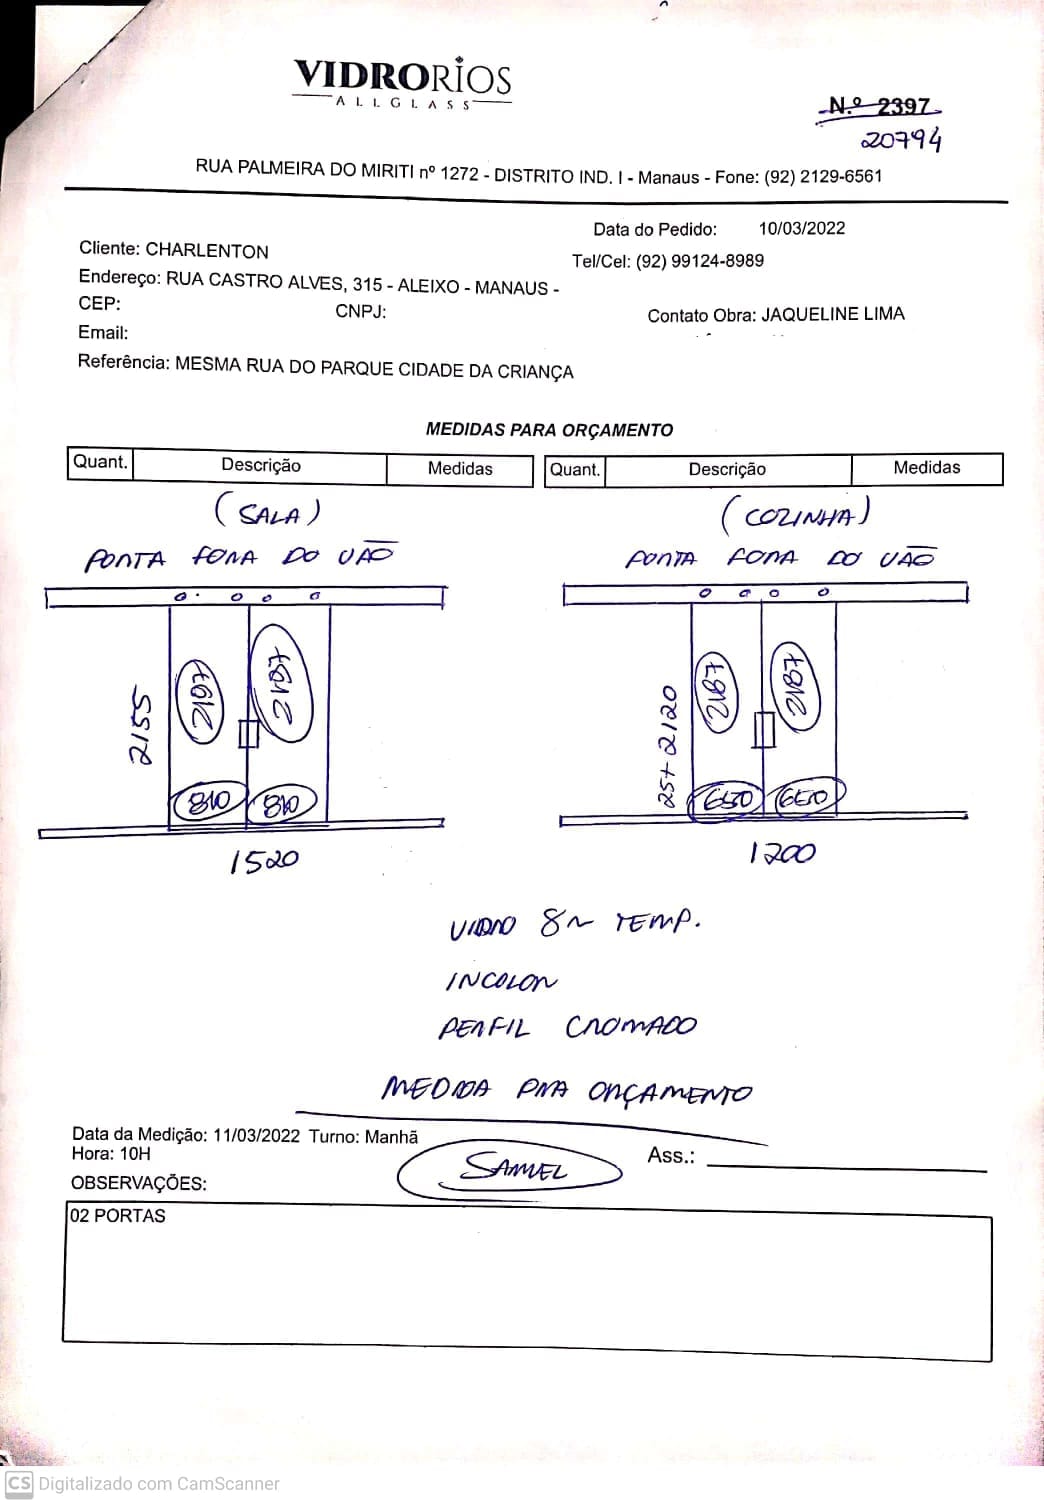 VIDRORIOS
ALLGLASS
N.º 2397
20794
RUA PALMEIRA DO MIRITI nº 1272 - DISTRITO IND. I - Manaus - Fone: (92) 2129-6561
Data do Pedido: 10/03/2022
Cliente: CHARLENTON
Tel/Cel: (92) 99124-8989
Endereço: RUA CASTRO ALVES, 315 - ALEIXO - MANAUS -
CEP:
CNPJ:
Contato Obra: JAQUELINE LIMA
Email:
Referência: MESMA RUA DO PARQUE CIDADE DA CRIANÇA
MEDIDAS PARA ORÇAMENTO
Quant. Descrição Medidas Quant. Descrição Medidas
(SALA)
PORTA FORA DO VÃO
2155
2187
2187
810
810
1520
(COZINHA)
PORTA FORA DO VÃO
25+2120
2187
2187
650
650
1200
VIDRO 8m TEMP.
INCOLOR
PERFIL CROMADO
MEDIDA PRA ORÇAMENTO
Data da Medição: 11/03/2022 Turno: Manhã
Hora: 10H
SAMUEL
Ass.:
OBSERVAÇÕES:
02 PORTAS
CS Digitalizado com CamScanner